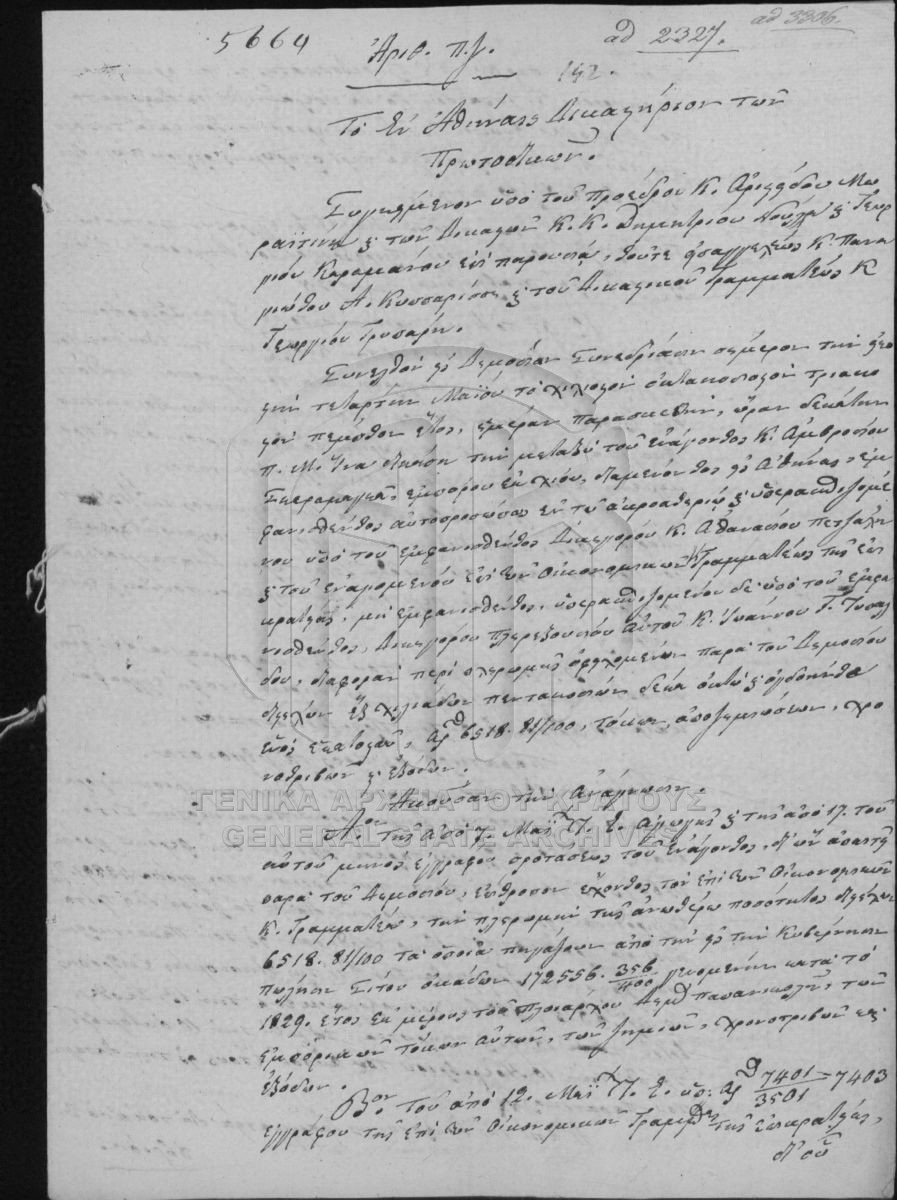 5664
Ἀριθ. Π.Ζ.
ad 2327.
ad 3306.
142.
Τὸ Ἐν Ἀθήναις Δικαστήριον τῶν
Πρωτοδικῶν.
Συγκείμενον ὑπὸ τοῦ προέδρου Κ. Ἀριστείδου Μω
ραϊτίνη καὶ τῶν Δικαστῶν Κ. Κ. Δημητρίου καὶ Γεωρ
γίου Καραμάνου ἐπὶ παρουσίᾳ τοῦτε εἰσαγγελέως Κ. Πανα
γιώτου Α. καὶ τοῦ Δικαστικοῦ Γραμματέως Κ
Γεωργίου Τρυπάρη.
Συνελθὸν εἰς Δημοσίαν Συνεδρίασιν σήμερον τὴν εἰκο
στὴν τετάρτην Μαΐου τὸ χιλιοστὸν ὀκτακοσιοστὸν τριακο
στὸν πέμπτον ἔτος, ἡμέραν παρασκευὴν, ὥραν δεκάτην
π. Μ. Ἵνα δικάσῃ τὴν μεταξὺ τοῦ ἐνάγοντος Κ. Ἀμβροσίου
Σκαραμαγκᾶ, ἐμπόρου ἐκ χίου, διαμένοντος εἰς Ἀθήνας, ἐμ
φανισθέντος αὐτοπροσώπως ἐν τῷ ἀκροατηρίῳ καὶ ὑπερασπιζομέ
νου ὑπὸ τοῦ ἐμφανισθέντος Δικηγόρου Κ. Ἀθανασίου Πετζάλη
καὶ τοῦ ἐναγομένου ἐπὶ τῶν Οἰκονομικῶν Γραμματέως τῆς ἐπι
κρατείας, μὴ ἐμφανισθέντος, ὑπερασπιζομένου δὲ ὑπὸ τοῦ ἐμφα
νισθέντος Δικηγόρου πληρεξουσίου αὐτοῦ Κ. Ἰωάννου Γ.
δου, διαφορὰν περὶ πληρωμῆς ὀφειλομένων παρὰ τοῦ Δημοσίου
διστήλων ἓξ χιλιάδων πεντακοσίων δέκα ὀκτὼ καὶ ὀγδοήντα
ἑνὸς ἑκατοστῶν, ἀρ. 6518. 81/100, τόκων, ἀποζημιώσεων, χρο
νοτριβῶν καὶ ἐξόδων.
Ἀκοῦσαν τὴν ἀνάγνωσιν.
Αον τῆς ἀπὸ 7. Μαΐ. Π. Ε. Ἀγωγῆς καὶ τῆς ἀπὸ 17. τοῦ
αὐτοῦ μηνὸς ἐγγράφου προτάσεως τοῦ ἐνάγοντος, δι' ὧν ἀπαιτεῖ
παρὰ τοῦ Δημοσίου, ἐπίτροπον ἔχοντος τὸν ἐπὶ τῶν Οἰκονομικῶν
Κ. Γραμματέα, τὴν πληρωμὴν τῆς ἀνωτέρω ποσότητος διστήλων
6518. 81/100 τὰ ὁποῖα πηγάζουν ἀπὸ τὴν εἰς τὴν Κυβέρνησιν
πώλησιν Σίτου ὀκάδων 172556. 356/400 γενομένην κατὰ τὸ
1829. ἔτος ἐκ μέρους τοῦ Πλοιάρχου Δημ. Παπανικολῆ, τῶν
ἐμπορικῶν τόκων αὐτῶν, τῶν ζημιῶν, χρονοτριβῶν καὶ
ἐξόδων.
Βον. Τοῦ ἀπὸ 12. Μαΐ. Π. Ε. ὑπ: ἀρ. 7401/3501 7403
ἐγγράφου τῆς ἐπὶ τῶν Οἰκονομικῶν Γραμμ. τῆς ἐπικρατείας,
δι' οὗ
ΓΕΝΙΚΑ ΑΡΧΕΙΑ ΤΟΥ ΚΡΑΤΟΥΣ
GENERAL STATE ARCHIVES